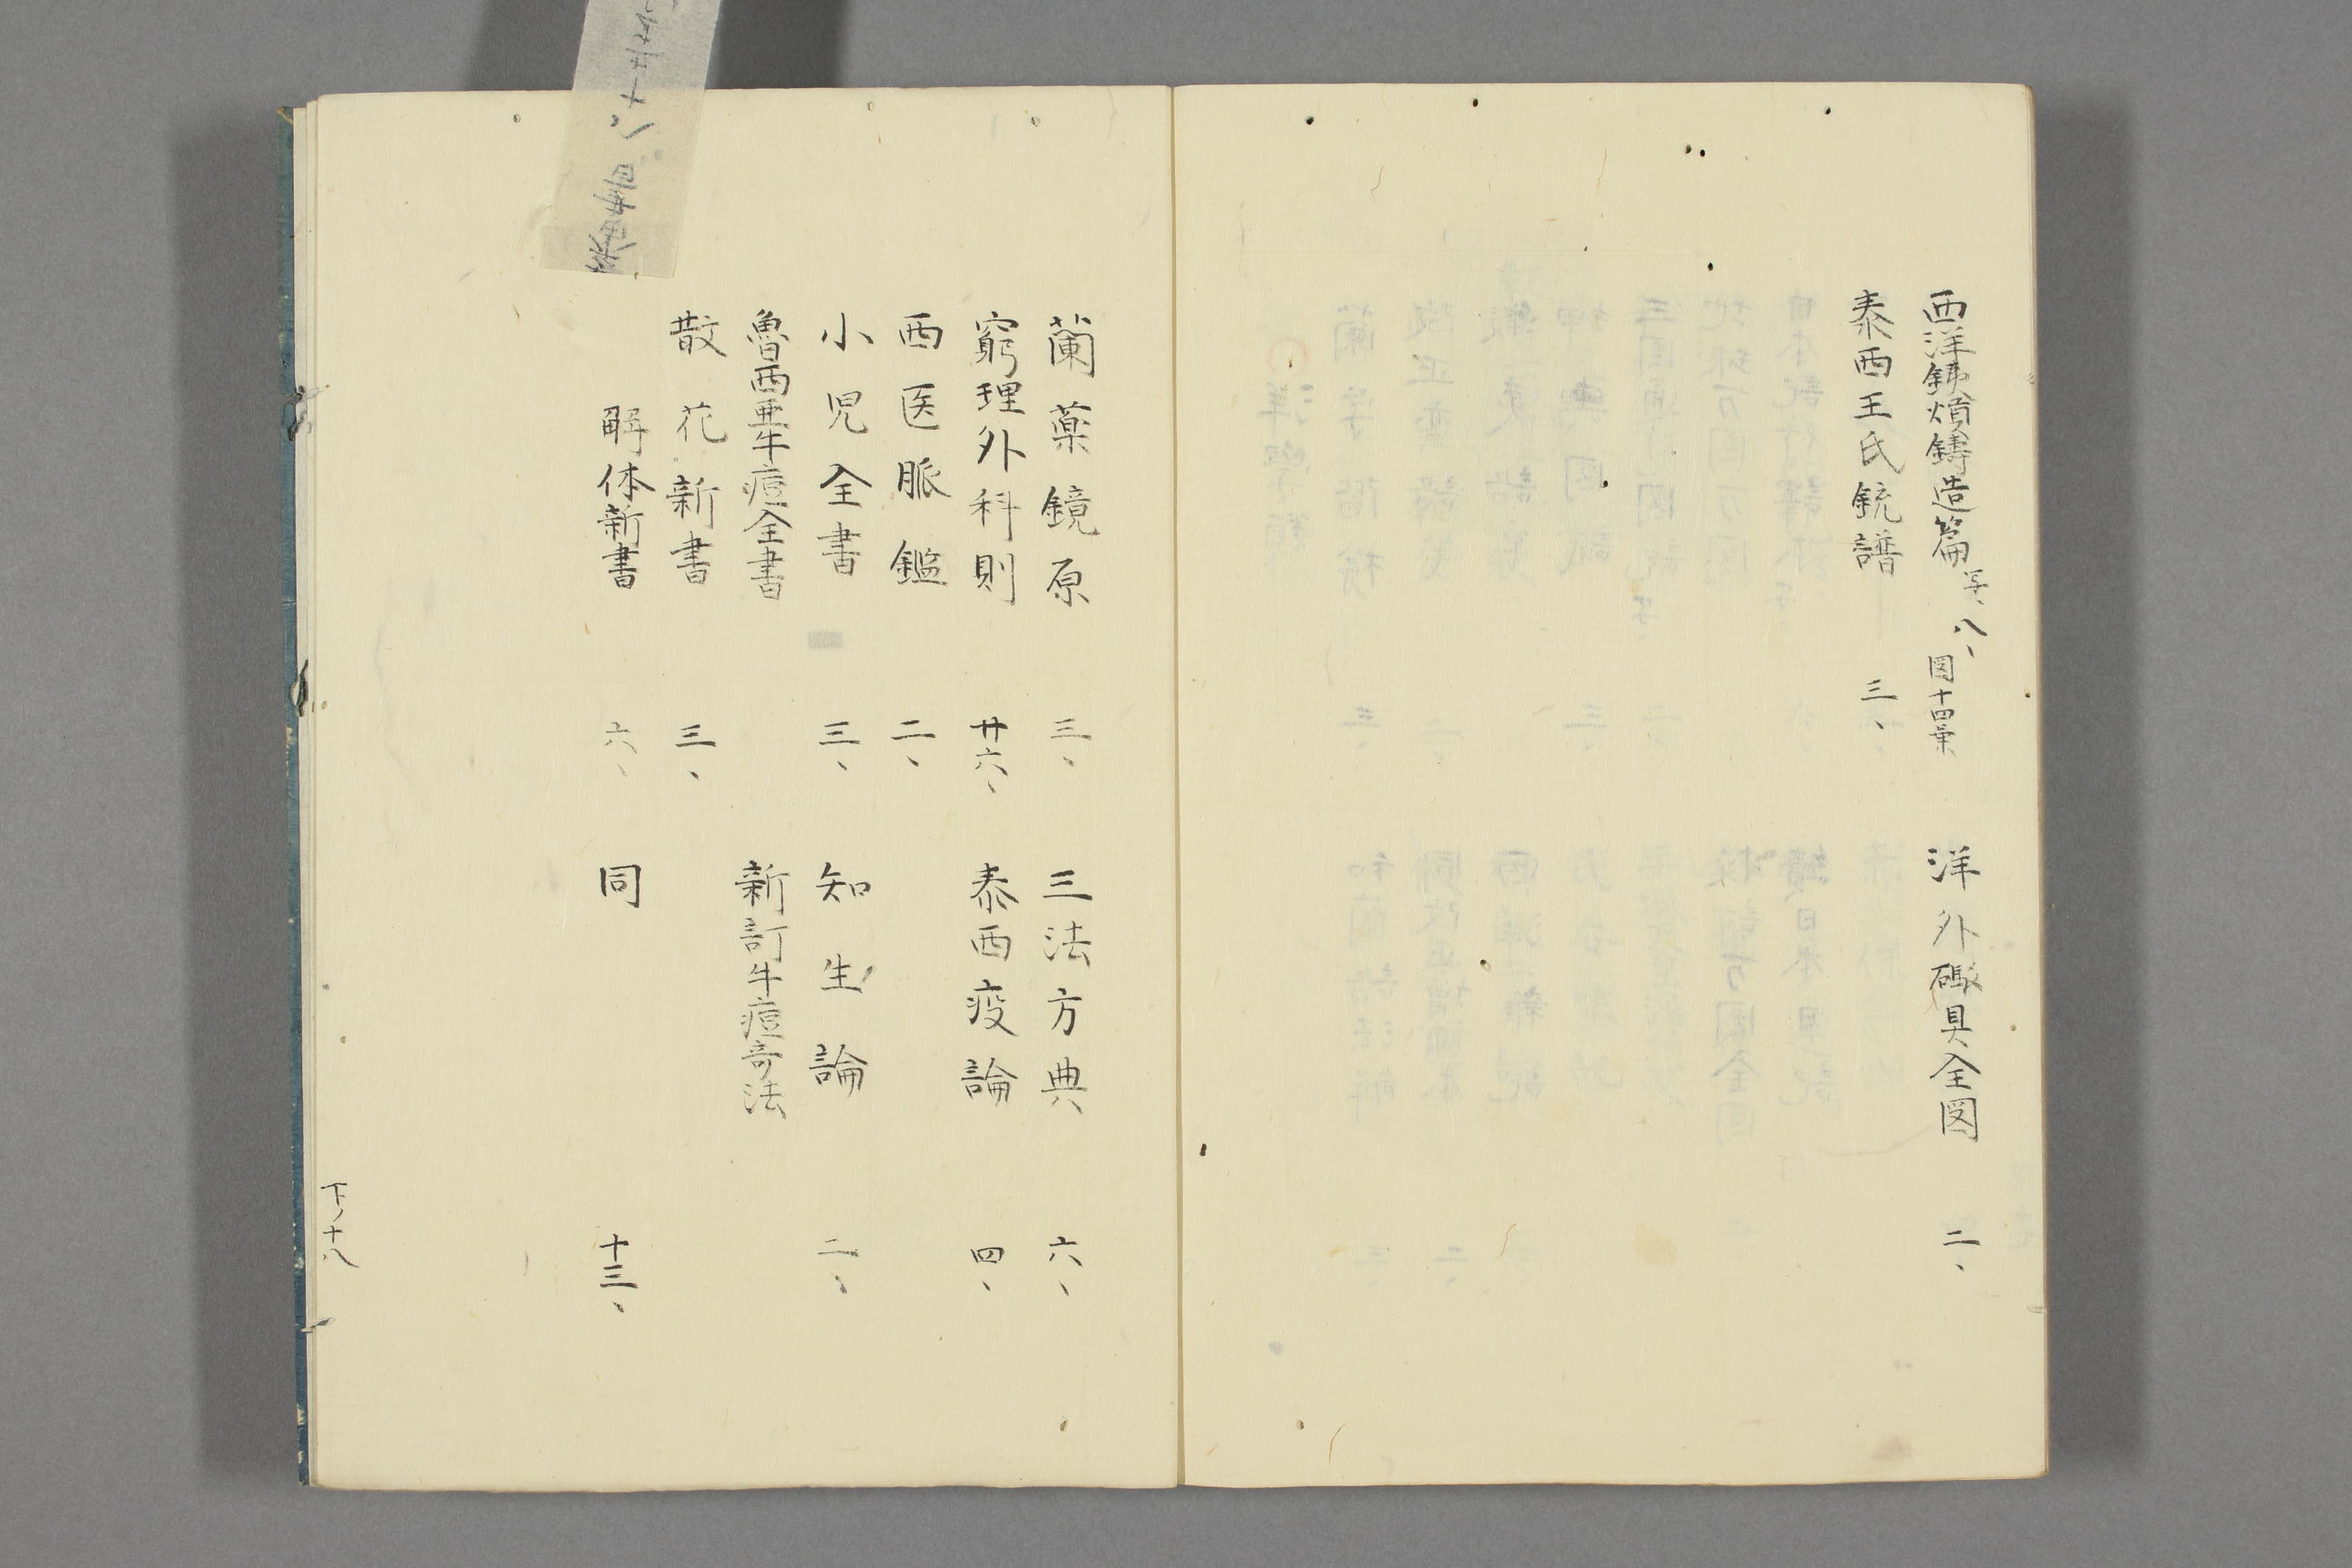 西洋鉄熕鋳造篇 写、八、 図十四葉 洋外礮具全図 二、
泰西王氏銃譜 三、
蘭薬鏡原 三、 三法方典 六、
窮理外科則 廿六、 泰西疫論 四、
西医脈鑑 二、
小児全書 三、 知生論 二、
魯西亜牛痘全書 新訂牛痘奇法
散花新書 三、
解体新書 六、 同 十三、
下ノ十八